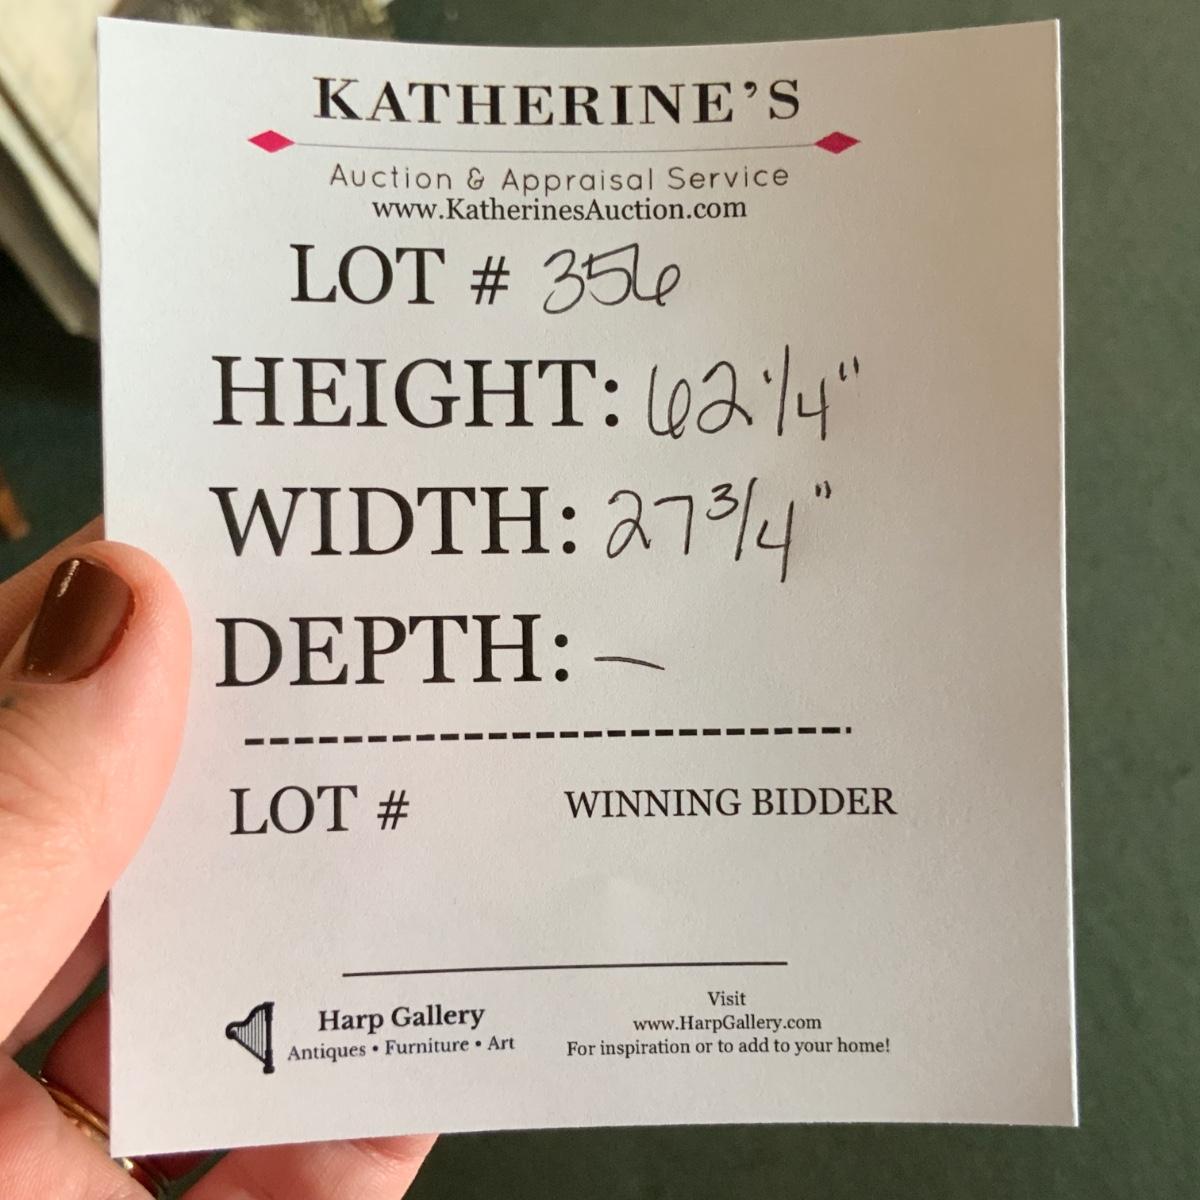 KATHERINE'S
Auction & Appraisal Service
www.KatherinesAuction.com
LOT # 356
HEIGHT: 62 1/4"
WIDTH: 27 3/4"
DEPTH: —
LOT # WINNING BIDDER
Harp Gallery
Antiques • Furniture • Art
Visit
www.HarpGallery.com
For inspiration or to add to your home!